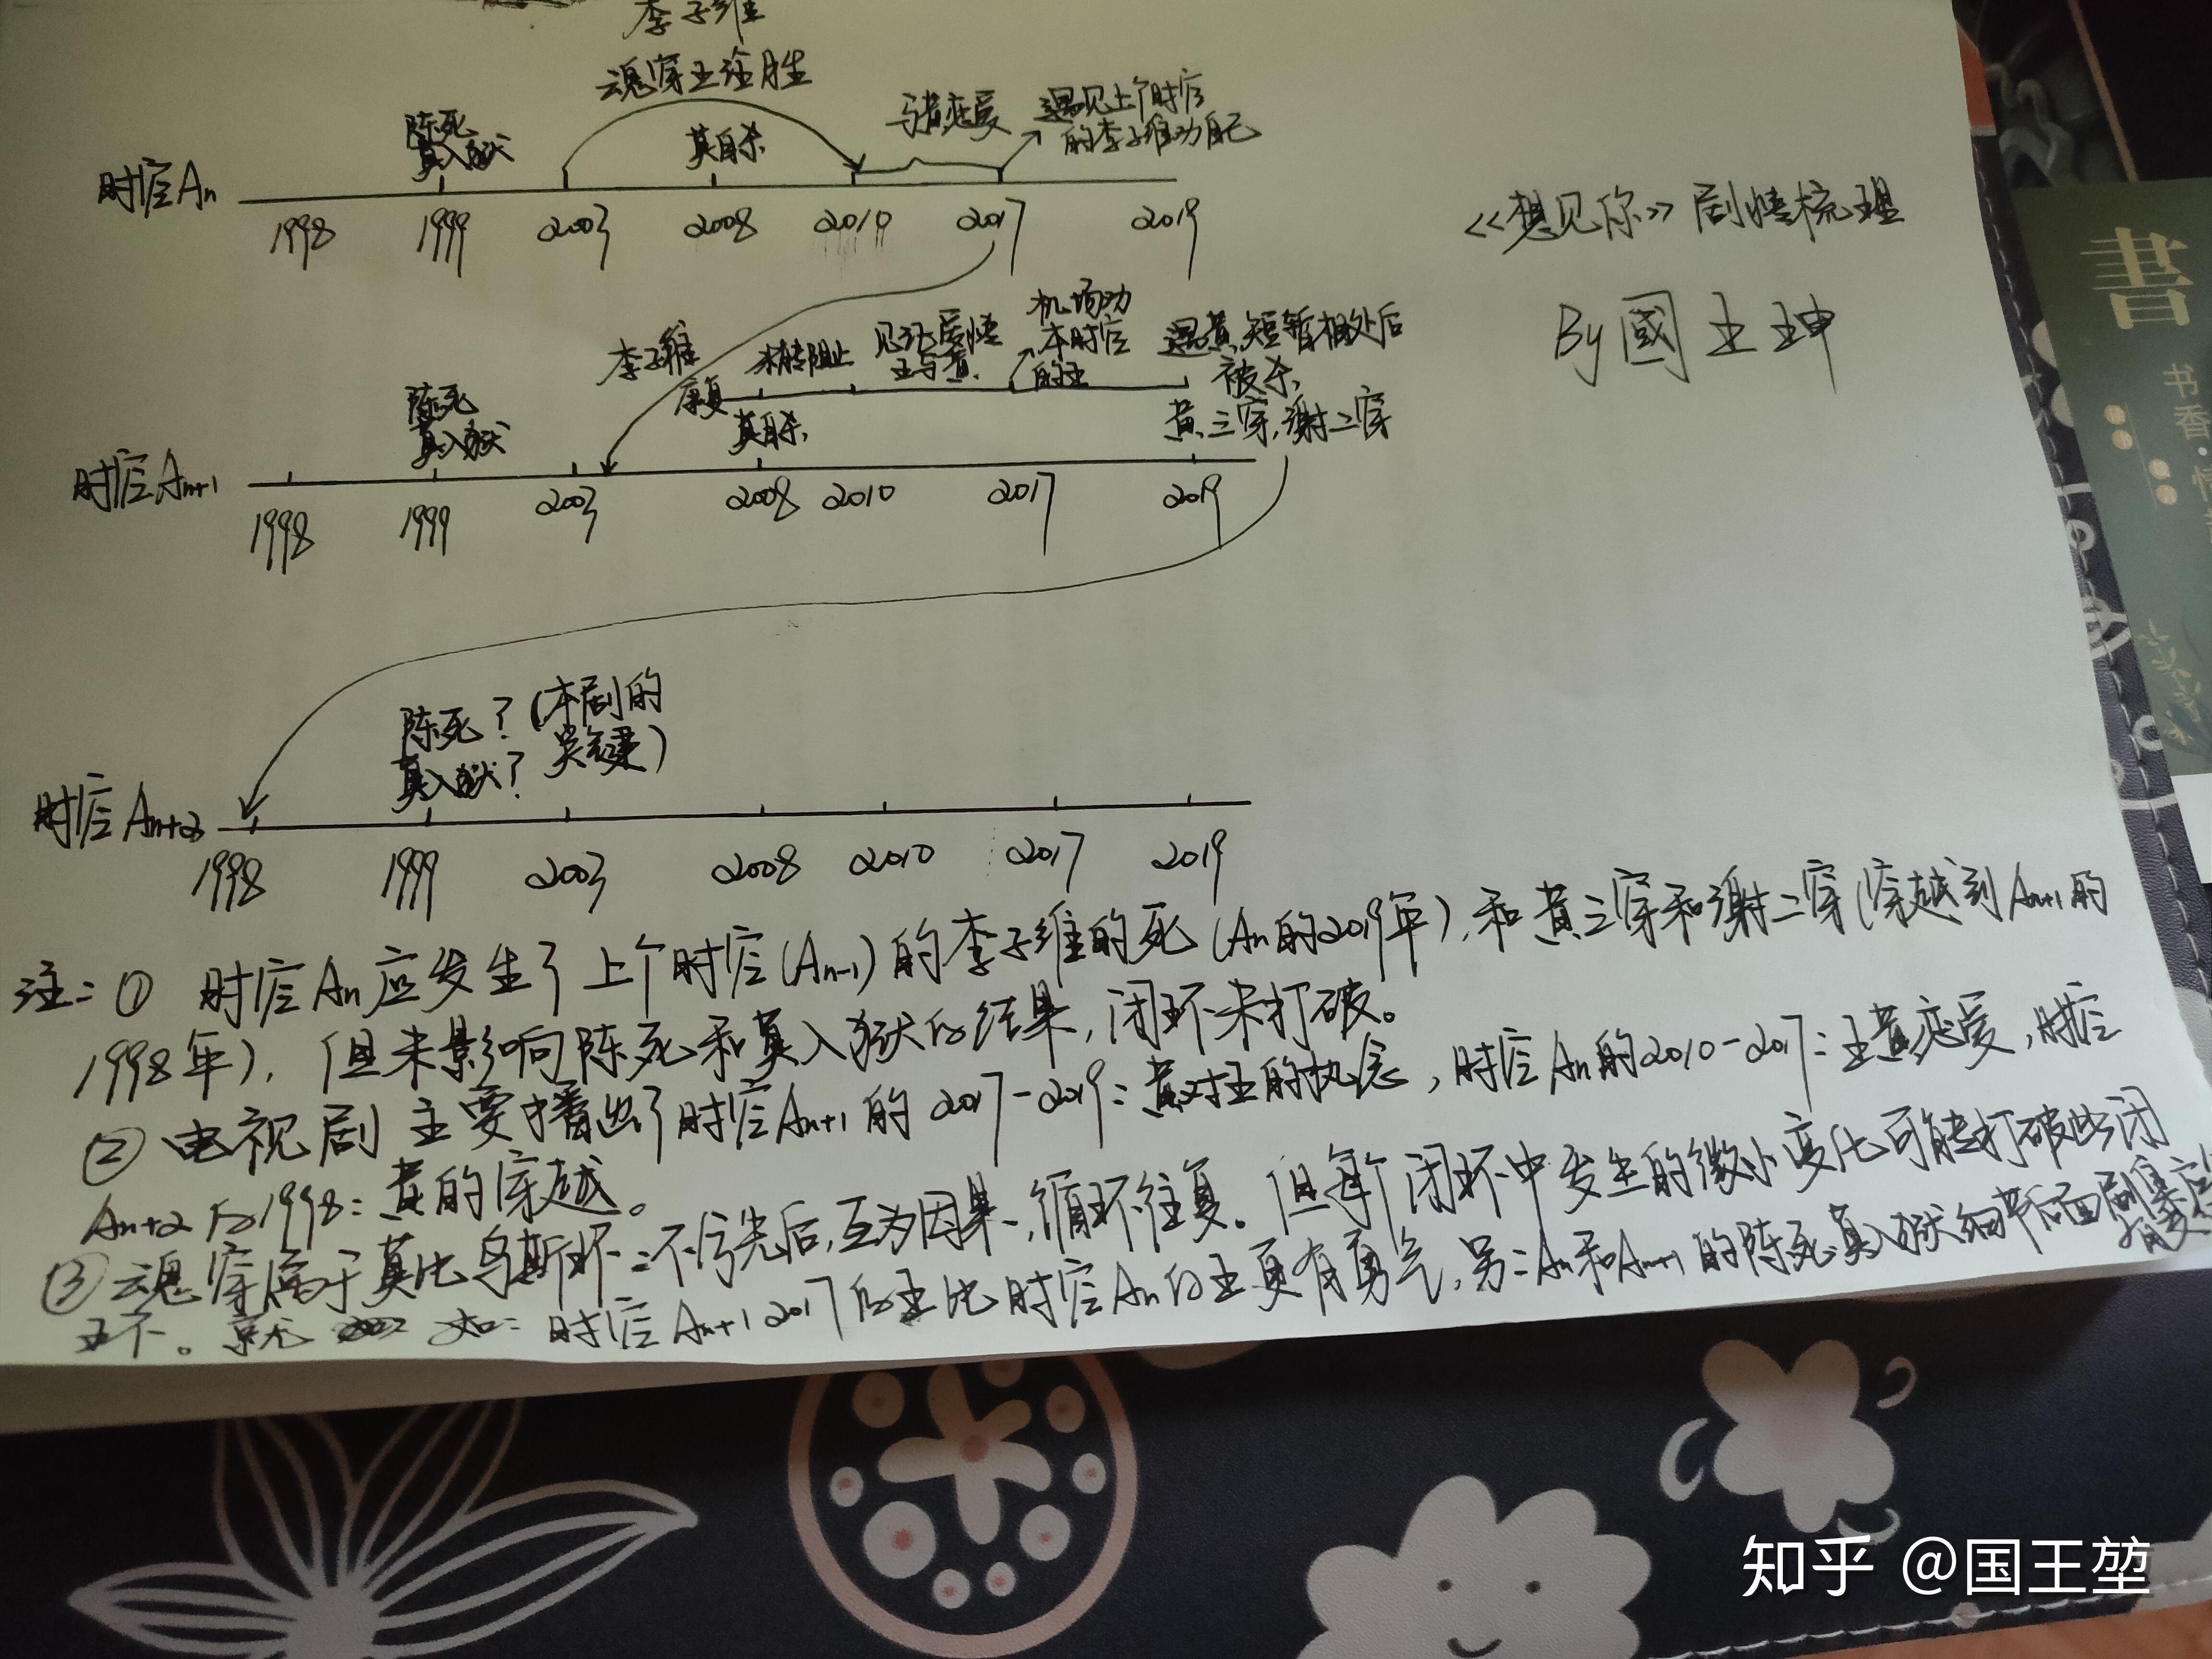 李子维
魂穿王诠胜
陈死
真入狱
真自杀
与黄恋爱
遇见上个时空
的李子维劝自己
时空An
1998 1999 2003 2008 2010 2017 2019
《想见你》剧情梳理
By 國王
李子维
穿复
未能阻止
见证爱情
王与黄
机场劝
本时空
的王
遇黄,短暂相处后
被杀,
黄三穿,谢二穿
陈死
真入狱
真自杀,
时空An+1
1998 1999 2003 2008 2010 2017 2019
陈死?(本剧的
真入狱? 关键)
时空An+2
1998 1999 2003 2008 2010 2017 2019
注:① 时空An应发生了上个时空(An-1)的李子维的死(An的2019年),和黄三穿和谢二穿(穿越到An+1的
1998年),但未影响陈死和真入狱的结果,闭环未打破。
② 电视剧主要播出了时空An+1的2017-2019:黄对王的执念,时空An的2010-2017:王黄恋爱,时空
An+2的1998:黄的穿越。
③ 魂穿属于莫比乌斯环:不分先后,互为因果,循环往复。但每个闭环中发生的微小变化可能打破此闭
环。就 如:时空An+1 2017的王比时空An的王更有勇气,另:An和An+1的陈死真入狱细节后面剧集应
有
書
书香·情
知乎 @国王堃